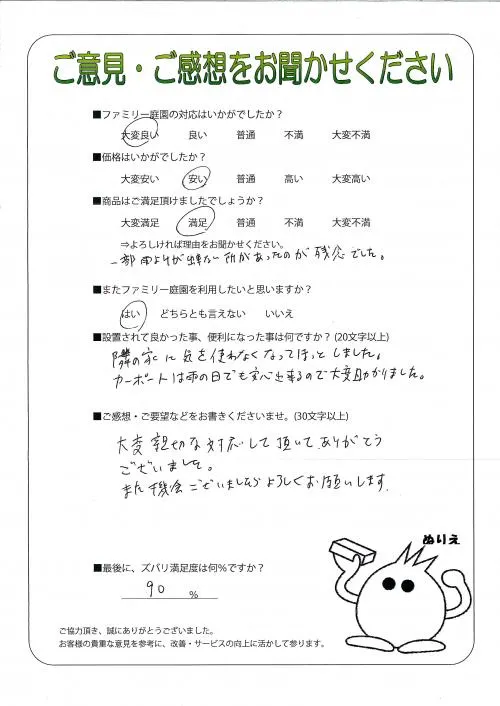 ご意見・ご感想をお聞かせください
■ファミリー庭園の対応はいかがでしたか？
大変良い 良い 普通 不満 大変不満
■価格はいかがでしたか？
大変安い 安い 普通 高い 大変高い
■商品はご満足頂けましたでしょうか？
大変満足 満足 普通 不満 大変不満
⇒よろしければ理由をお聞かせください。
一部 出ない所があったのが残念でした。
■またファミリー庭園を利用したいと思いますか？
はい どちらとも言えない いいえ
■設置されて良かった事、便利になった事は何ですか？(20文字以上)
隣の家に気を使わなくなってほっとしました。
カーポートは雨の日でも安心出来るので大変助かりました。
■ご感想・ご要望などをお書きくださいませ。(30文字以上)
大変親切な対応して頂いてありがとう
ございました。
また機会ございましたらよろしくお願いします。
ぬりえ
■最後に、ズバリ満足度は何％ですか？
90 ％
ご協力頂き、誠にありがとうございました。
お客様の貴重な意見を参考に、改善・サービスの向上に活かして参ります。